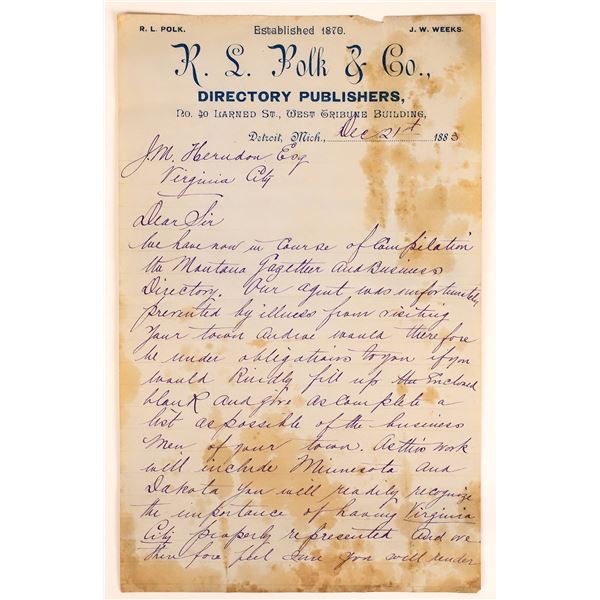 R. L. POLK.
Established 1870.
J. W. WEEKS.
R. L. Polk & Co.,
DIRECTORY PUBLISHERS,
No. 40 LARNED ST., WEST TRIBUNE BUILDING,
Detroit, Mich., Dec 21st 1883
J.M. Herndon Esq
Virginia City
Dear Sir
We have now in course of Compilation
the Montana Gazetteer and Business
Directory. Our agent was unfortunately
prevented by illness from visiting
your town and we would therefore
be under obligations to you if you
would kindly fill up the Enclosed
blank and give as complete a
list as possible of the business
men of your town. As this work
will include Minnesota and
Dakota you will readily recognize
the importance of having Virginia
City properly represented and we
therefore feel sure you will render